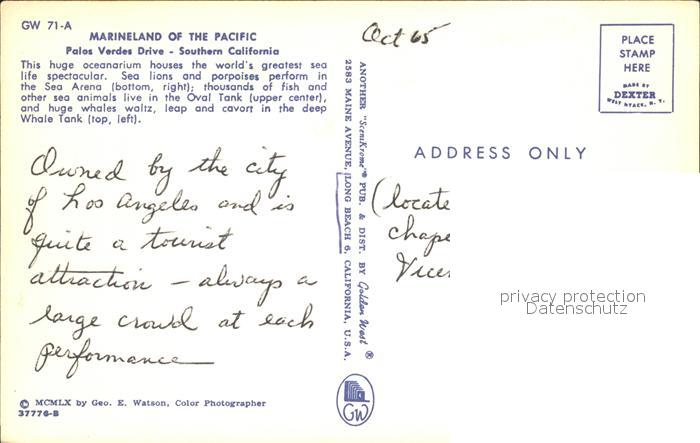 GW 71-A
MARINELAND OF THE PACIFIC
Palos Verdes Drive - Southern California
This huge oceanarium houses the world's greatest sea
life spectacular. Sea lions and porpoises perform in
the Sea Arena (bottom, right); thousands of fish and
other sea animals live in the Oval Tank (upper center),
and huge whales waltz, leap and cavort in the deep
Whale Tank (top, left).
Owned by the city
of Los Angeles and is
quite a tourist
attraction - always a
large crowd at each
performance
© MCMLX by Geo. E. Watson, Color Photographer
37776-B
ANOTHER "ScenKrome"® PUB. & DIST. BY Golden West ®
2583 MAINE AVENUE, LONG BEACH 6, CALIFORNIA, U.S.A.
GW
Oct 65
PLACE
STAMP
HERE
MADE BY
DEXTER
WEST NYACK, N. Y.
ADDRESS ONLY
(locate
chape
Vice
privacy protection
Datenschutz